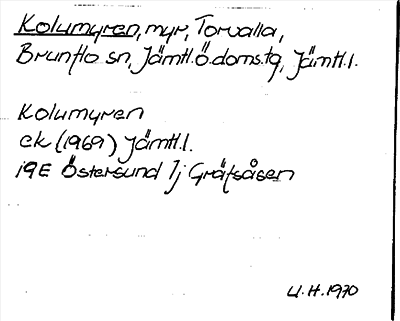 Kolumyren, myr, Torvalla,
Brunflo sn, Jämtl.Ö.doms.tg, Jämtl.l.
Kolumyren
ek (1969) Jämtl.l.
19E Östersund 1j Gräfsåsen
U.H.1970